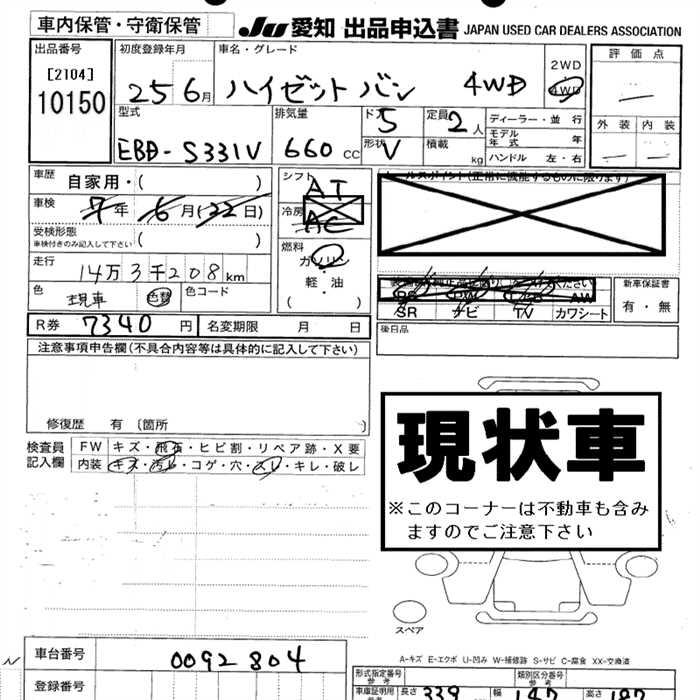 車内保管・守衛保管
JU 愛知 出品申込書 JAPAN USED CAR DEALERS ASSOCIATION
出品番号
[2104]
10150
初度登録年月
25 6月
車名・グレード
ハイゼットバン 4WD
2WD
4WD
評価点
外装 内装
型式
EBD-S331V
排気量
660 cc
ド 5
形状 V
定員 2人
積載 kg
ディーラー・並行
モデル年式 年
ハンドル 左・右
車歴 自家用・( )
車検 7年 6月(22日)
受検形態
車検付きのみ記入して下さい ( )
走行
14万3千208km
色 現車 色替 色コード
シフト
AT
冷房
AC
燃料
ガソリン
軽・油
セールスポイント(正常に機能するものに限ります)
SR ナビ TV カワシート
新車保証書
有・無
R券 7340円 名変期限 月 日
後日品
注意事項申告欄(不具合内容等は具体的に記入して下さい)
修復歴 有 〔箇所 〕
検査員記入欄
FW キズ・飛石・ヒビ割・リペア跡・X要
内装 キズ・汚レ・コゲ・穴・スレ・キレ・破レ
現状車
※このコーナーは不動車も含み
ますのでご注意下さい
スペア
A-キズ E-エクボ U-凹み W-補修跡 S-サビ C-腐食 XX-交換済
車台番号 0092804
登録番号
形式指定番号
参考
類別区分番号
参考
車庫証明用
参考
長さ 339 幅 147 高さ 187